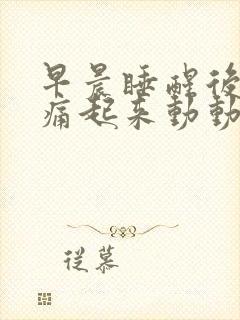 早晨睡醒後
痛起来動動
從慕